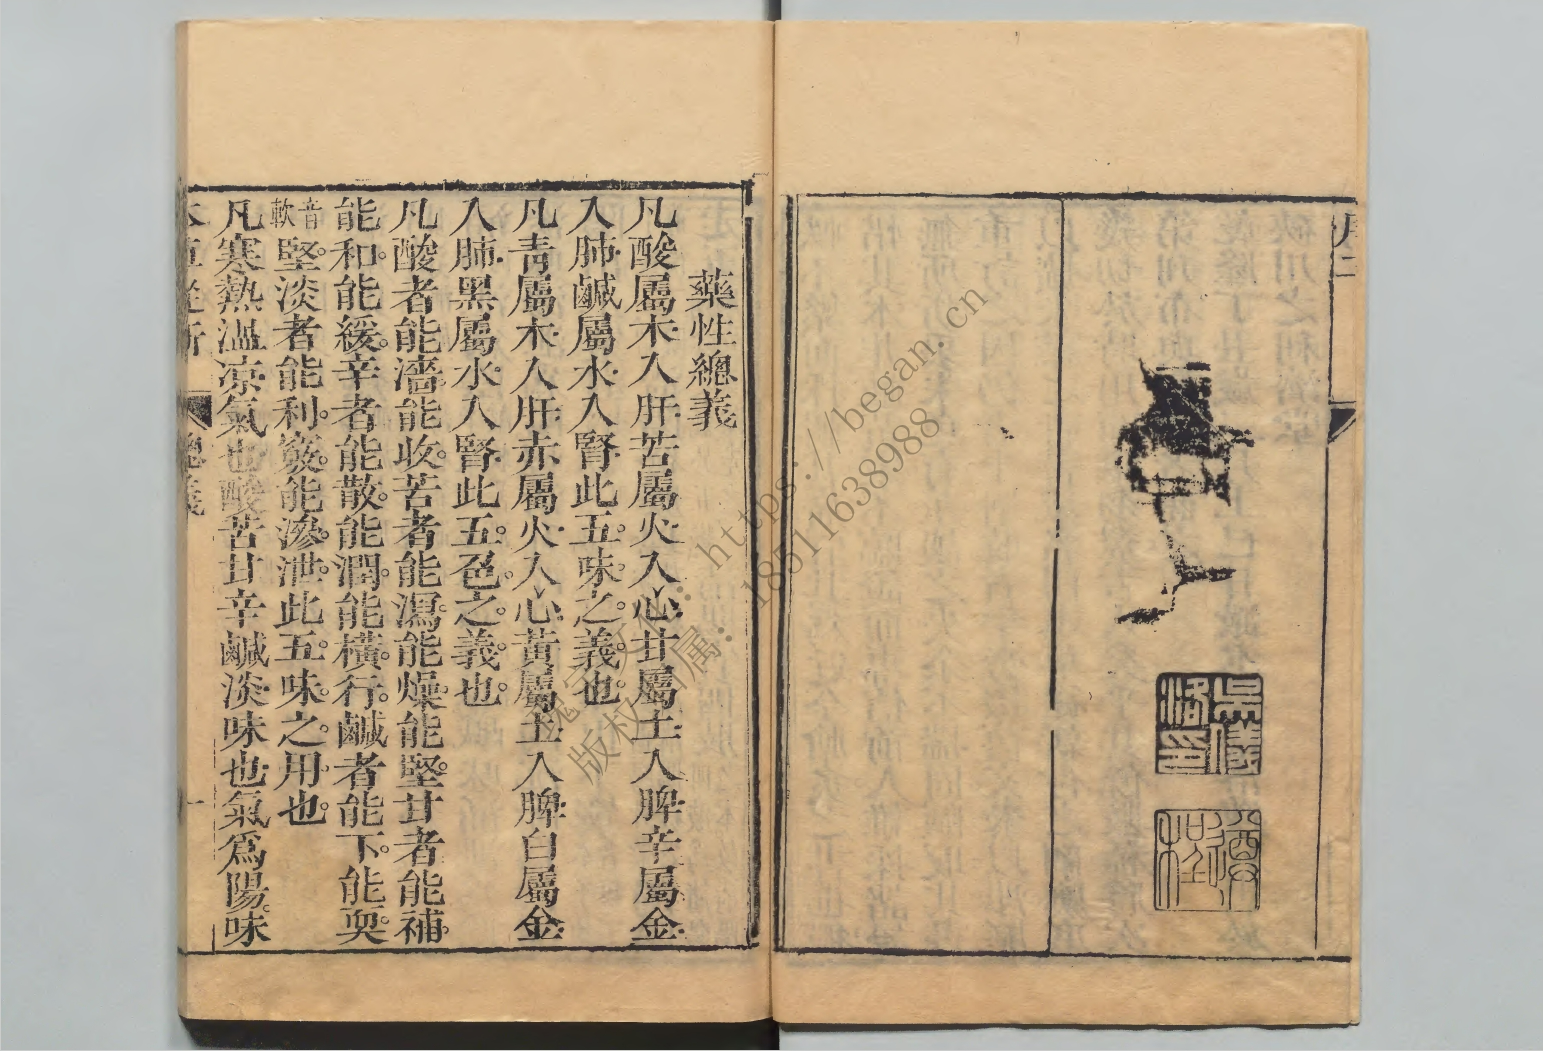 序二
吳儀洛印
遵程
藥性總義
凡酸屬木入肝苦屬火入心甘屬土入脾辛屬金
入肺鹹屬水入腎此五味之義也
凡青屬木入肝赤屬火入心黃屬土入脾白屬金
入肺黑屬水入腎此五色之義也
凡酸者能濇能收苦者能瀉能燥能堅甘者能補
能和能緩辛者能散能潤能橫行鹹者能下能耎
音軟堅淡者能利竅能滲泄此五味之用也
凡寒熱溫凉氣也酸苦甘辛鹹淡味也氣爲陽味
總義 一
https://began.cn
版权 属：18511638988